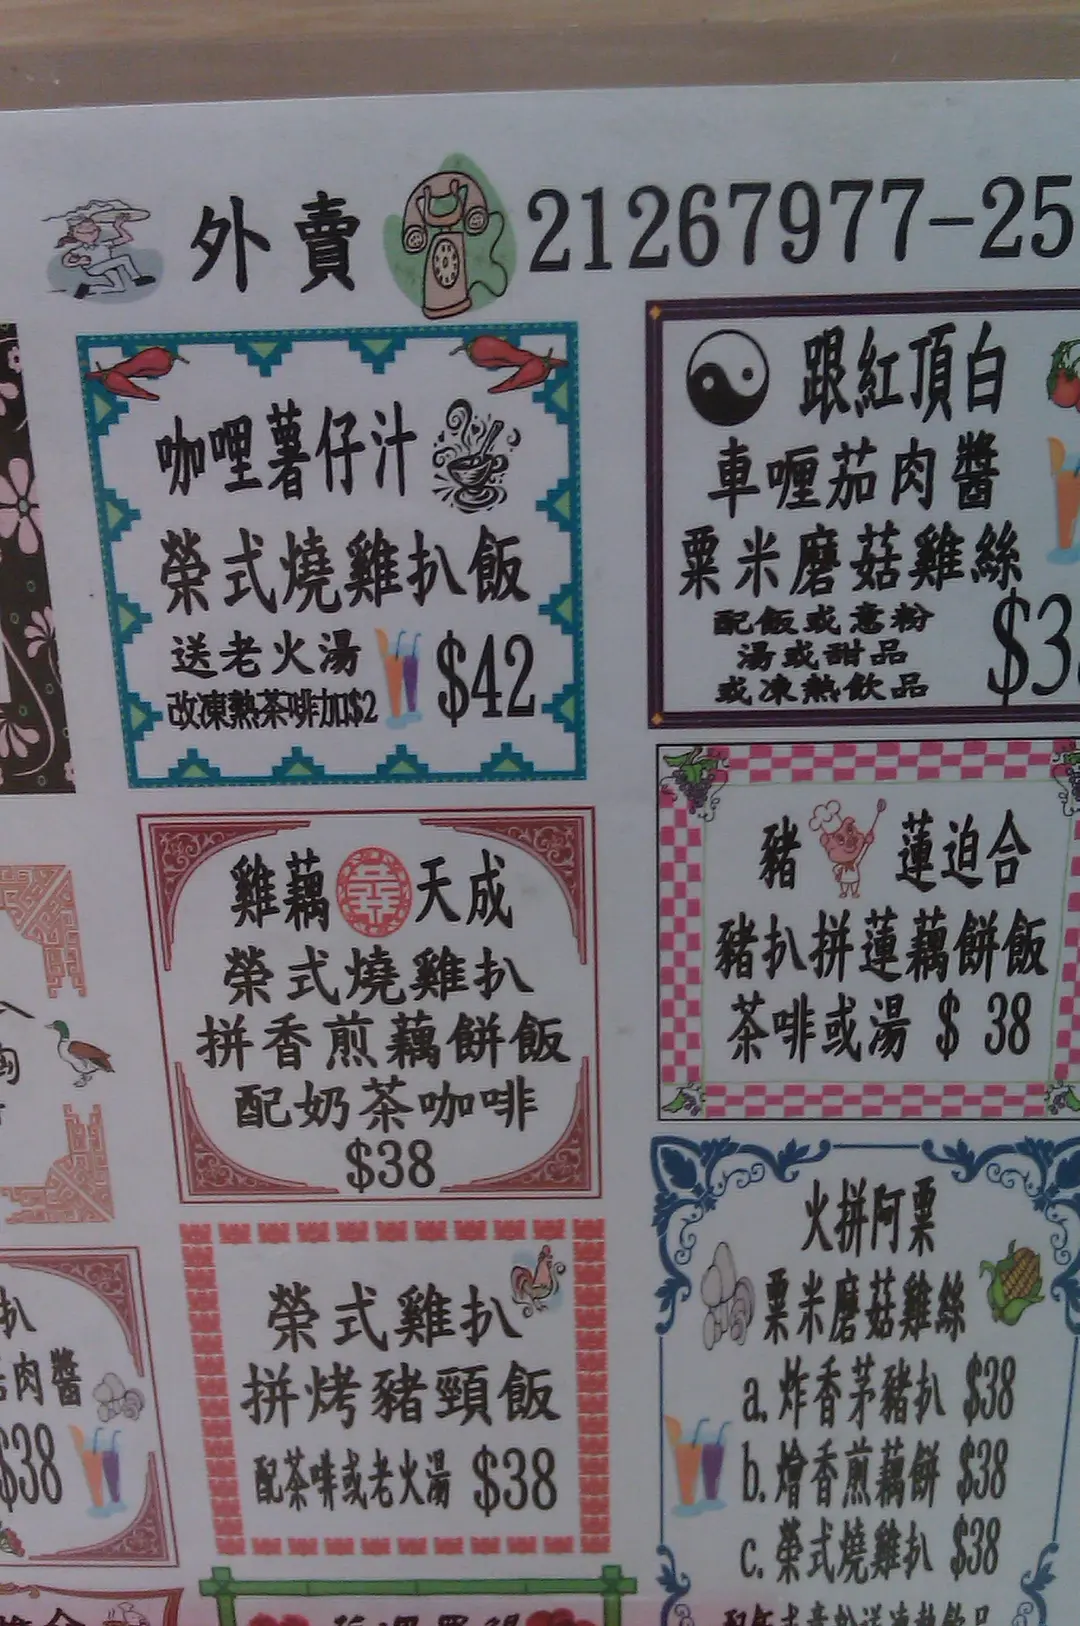 外賣 21267977-25
咖哩薯仔汁
榮式燒雞扒飯
送老火湯 $42
改凍熱茶啡加$2
跟紅頂白
車喱茄肉醬
粟米磨菇雞絲
配飯或意粉
湯或甜品
或凍熱飲品
$3
雞藕 天成
榮式燒雞扒
拼香煎藕餅飯
配奶茶咖啡
$38
豬 蓮迫合
豬扒拼蓮藕餅飯
茶啡或湯 $ 38
榮式雞扒
拼烤豬頸飯
配茶啡或老火湯 $38
火拼阿粟
粟米磨菇雞絲
a. 炸香茅豬扒 $38
b. 燴香煎藕餅 $38
c. 榮式燒雞扒 $38
扒
肉醬
$38